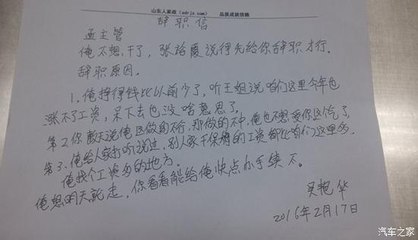 山东人家庭 品质成就信赖
辞职信
孟主管
俺不想干了,张培霞说得先给你辞职才行。
辞职原因。
1.俺挣得钱比以前少了,听王姐说咱们这里今年也
涨不了工资,呆下去也没啥意思了。
第2你数天说俺这做的不行,那做的不中,俺也不想受你这个气了
第3.俺给人家打听说过,别人家干保洁的工资都比咱们这里多
俺找个工资多的地方。
俺想明天就走,你看看能给俺快点办手续不。
艳华
2016年2月17日
汽车之家